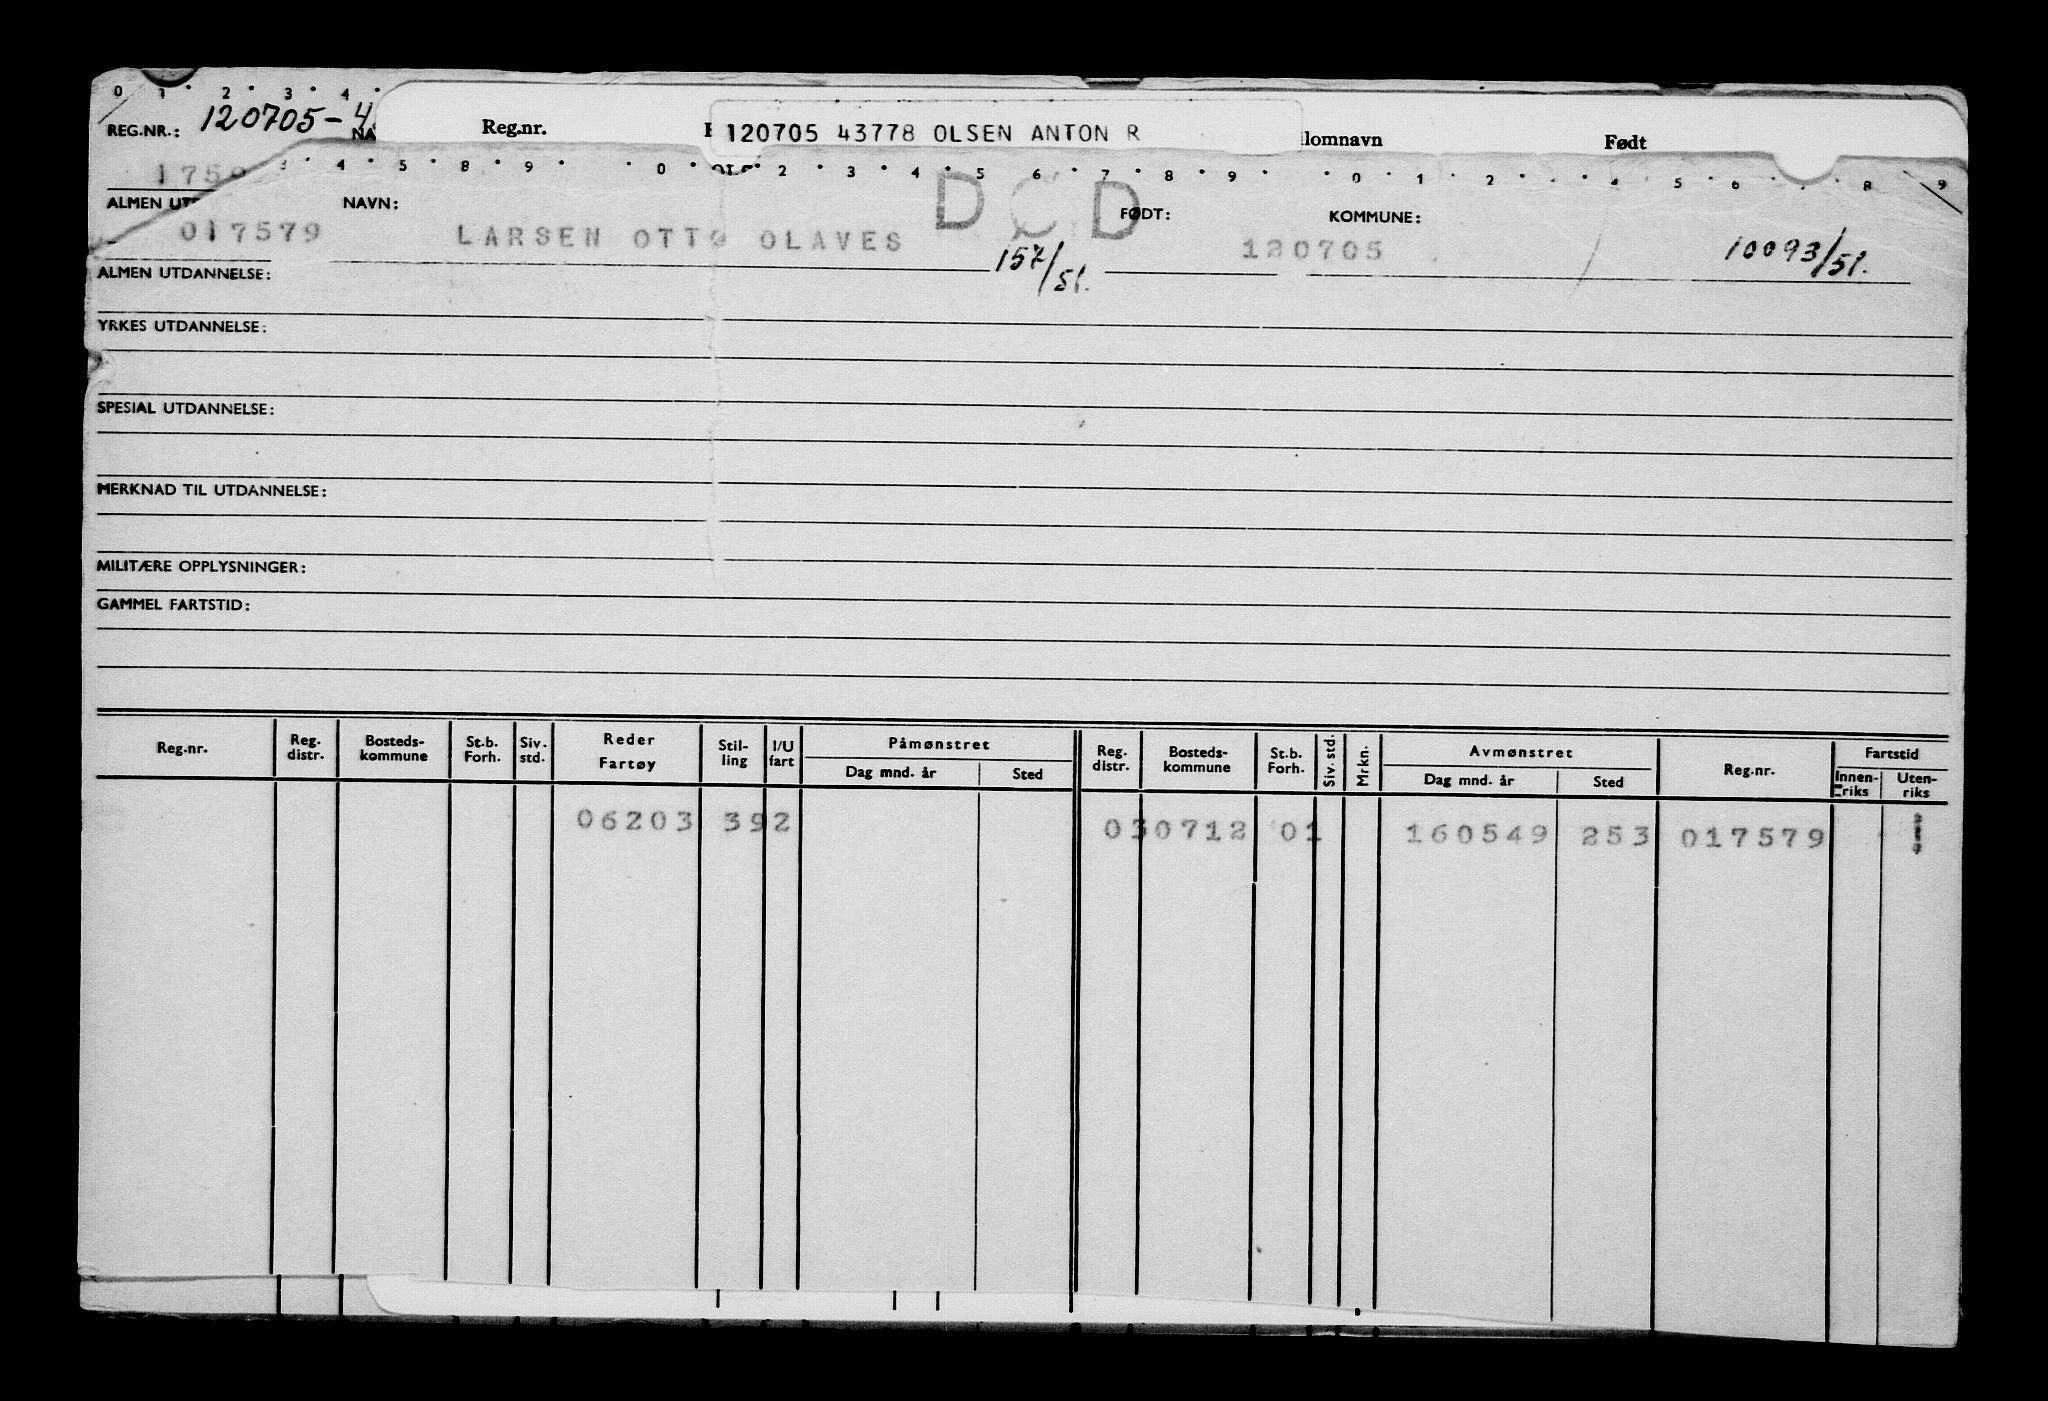 0 1 2 3 4
REG.NR.: 120705-4
Reg.nr. 120705 43778 OLSEN ANTON R lomnavn Født
3 4 5 8 9 0 2 3 4 5 6 7 8 9 0 1 2 4 5 6 8 9
ALMEN UT NAVN: D Ø D FØDT: KOMMUNE:
017579 LARSEN OTTO OLAVES 157/51. 120705 10093/51.
ALMEN UTDANNELSE:
YRKES UTDANNELSE:
SPESIAL UTDANNELSE:
MERKNAD TIL UTDANNELSE:
MILITÆRE OPPLYSNINGER:
GAMMEL FARTSTID:
Reg.nr. Reg. distr. Bosteds-kommune St.b. Forh. Siv. std. Reder Fartøy Stil-ling I/U fart Påmønstret Reg. distr. Bosteds-kommune St.b. Forh. Siv. std. Mrkn. Avmønstret Reg.nr. Fartstid
Dag mnd. år Sted Dag mnd. år Sted Innen-riks Uten-riks
06203 392 030712 01 160549 253 017579